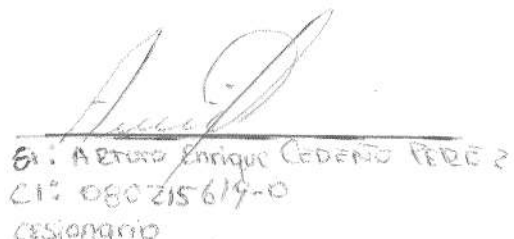 Sr: ARTURO Enrique CEDEÑO PEREZ
CI: 080215619-0
cesionario